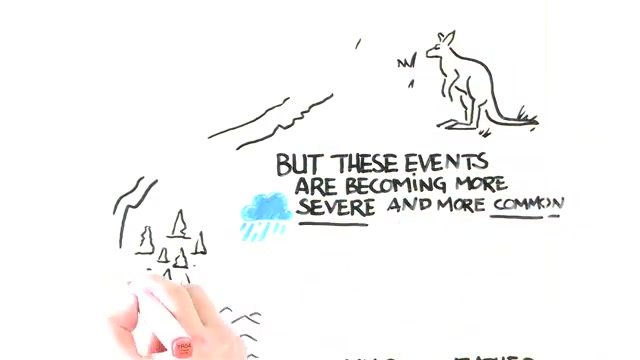 BUT THESE EVENTS
ARE BECOMING MORE
SEVERE AND MORE COMMON